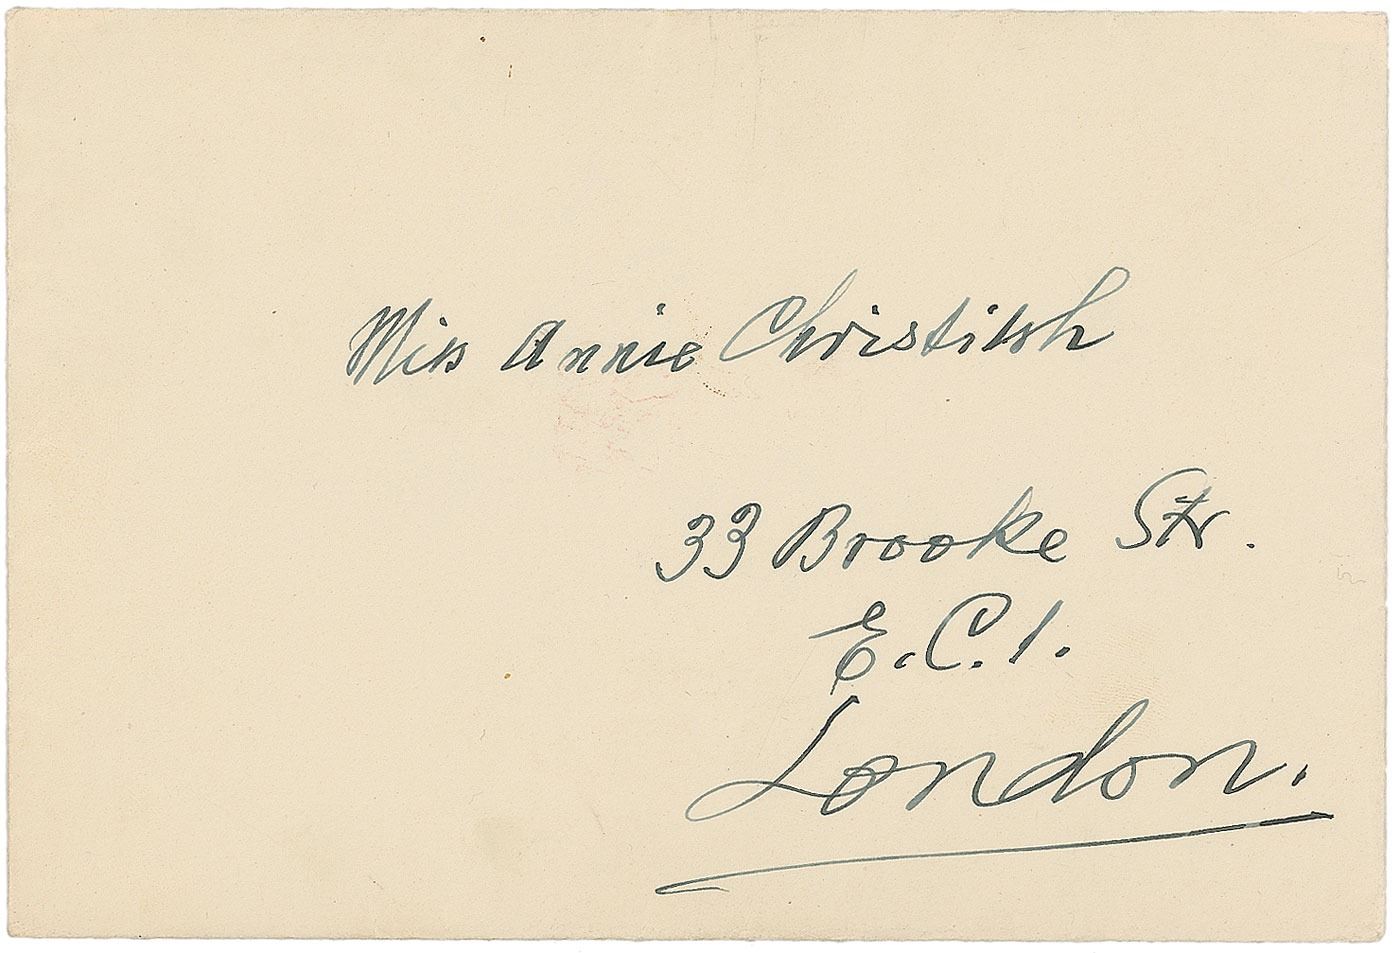 Miss Annie Christitsh
33 Brooke Str.
E.C.1.
London.